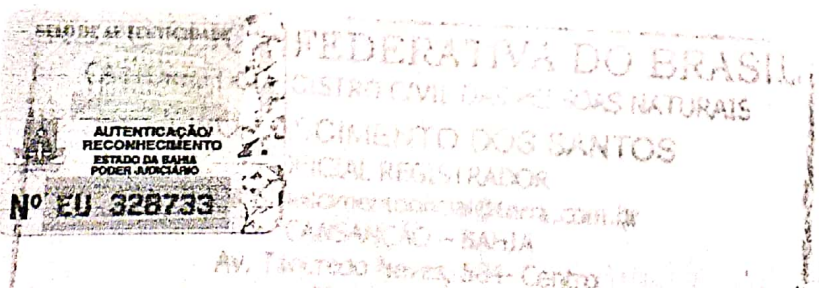 SELO DE AUTENTICIDADE
AUTENTICAÇÃO/
RECONHECIMENTO
ESTADO DA BAHIA
PODER JUDICIÁRIO
Nº EU 328733
FEDERATIVA DO BRASIL
REGISTRO CIVIL DAS PESSOAS NATURAIS
NASCIMENTO DOS SANTOS
OFICIAL REGISTRADOR
CANSANÇÃO - BAHIA
Av. Tancredo Neves, 534 - Centro